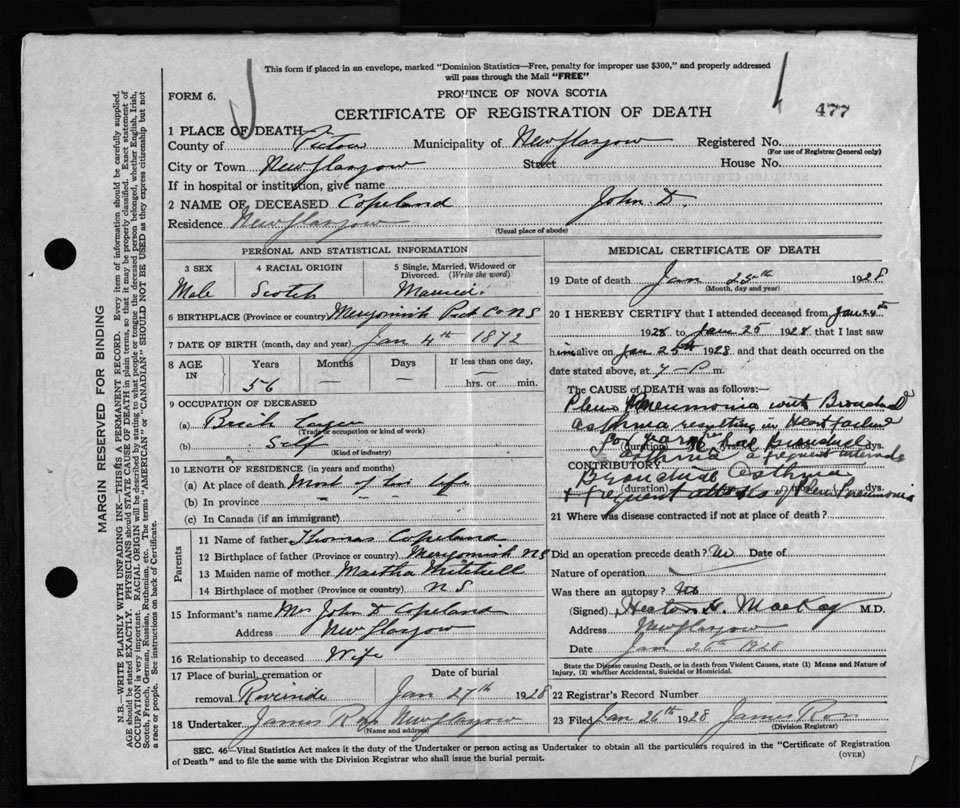 This form if placed in an envelope, marked "Dominion Statistics—Free, penalty for improper use $300," and properly addressed
will pass through the Mail "FREE"
FORM 6.
PROVINCE OF NOVA SCOTIA
CERTIFICATE OF REGISTRATION OF DEATH
477
1 PLACE OF DEATH
County of Pictou Municipality of New Glasgow Registered No.
(For use of Registrar General only)
City or Town New Glasgow Street House No.
If in hospital or institution, give name
2 NAME OF DECEASED Copeland John D.
Residence New Glasgow
(Usual place of abode)
PERSONAL AND STATISTICAL INFORMATION
3 SEX 4 RACIAL ORIGIN 5 Single, Married, Widowed or
Divorced. (Write the word)
Male Scotch Married.
6 BIRTHPLACE (Province or country) Merigomish Pict Co NS
7 DATE OF BIRTH (month, day and year) Jan 4th 1872
8 AGE IN Years Months Days If less than one day,
56 — — hrs. or min.
9 OCCUPATION OF DECEASED
(a) Brick layer
(Trade or occupation or kind of work)
(b) Self
(Kind of industry)
10 LENGTH OF RESIDENCE (in years and months)
(a) At place of death Most of his life
(b) In province
(c) In Canada (if an immigrant)
Parents
11 Name of father Thomas Copeland
12 Birthplace of father (Province or country) Merigomish NS
13 Maiden name of mother Martha Mitchell
14 Birthplace of mother (Province or country) NS
15 Informant's name Mrs John D Copeland
Address New Glasgow
16 Relationship to deceased Wife
17 Place of burial, cremation or Date of burial
removal Riverside Jan 27th 1928
18 Undertaker James Ross New Glasgow
(Name and address)
MEDICAL CERTIFICATE OF DEATH
19 Date of death Jan 25th 1928
(Month, day and year)
20 I HEREBY CERTIFY that I attended deceased from Jan 24th
1928 to Jan 25 1928 that I last saw
him alive on Jan 25th 1928 and that death occurred on the
date stated above, at 7-P m.
The CAUSE OF DEATH was as follows:
Pleuro Pneumonia with Bronchial
asthma resulting in Heart failure
For years had Bronchial
(duration) dys.
asthma a frequent intervals
CONTRIBUTORY
Bronchial asthma
(duration) dys.
& frequent attacks of Pleuro Pneumonia
21 Where was disease contracted if not at place of death?
Did an operation precede death? No Date of
Nature of operation
Was there an autopsy? No
(Signed) MacKay M.D.
Address New Glasgow
Date Jan 26th 1928
State the Disease causing Death, or in death from Violent Causes, state (1) Means and Nature of
Injury, (2) whether Accidental, Suicidal or Homicidal.
22 Registrar's Record Number
23 Filed Jan 26th 1928 James Ross
(Division Registrar)
SEC. 46—Vital Statistics Act makes it the duty of the Undertaker or person acting as Undertaker to obtain all the particulars required in the "Certificate of Registration
of Death" and to file the same with the Division Registrar who shall issue the burial permit.
(OVER)
MARGIN RESERVED FOR BINDING
N.B.—WRITE PLAINLY WITH UNFADING INK—THIS IS A PERMANENT RECORD. Every item of information should be carefully supplied.
AGE should be stated EXACTLY. PHYSICIANS should STATE CAUSE OF DEATH in plain terms, so that it may be properly classified. Exact statement of
OCCUPATION is very important. RACIAL ORIGIN will be described by stating to what people or tongue the deceased person belonged, whether English, Irish,
Scotch, French, German, Russian, Ruthenian, etc. The terms "AMERICAN" or "CANADIAN" SHOULD NOT BE USED as they express citizenship but not
a race or people. See instructions on back of Certificate.